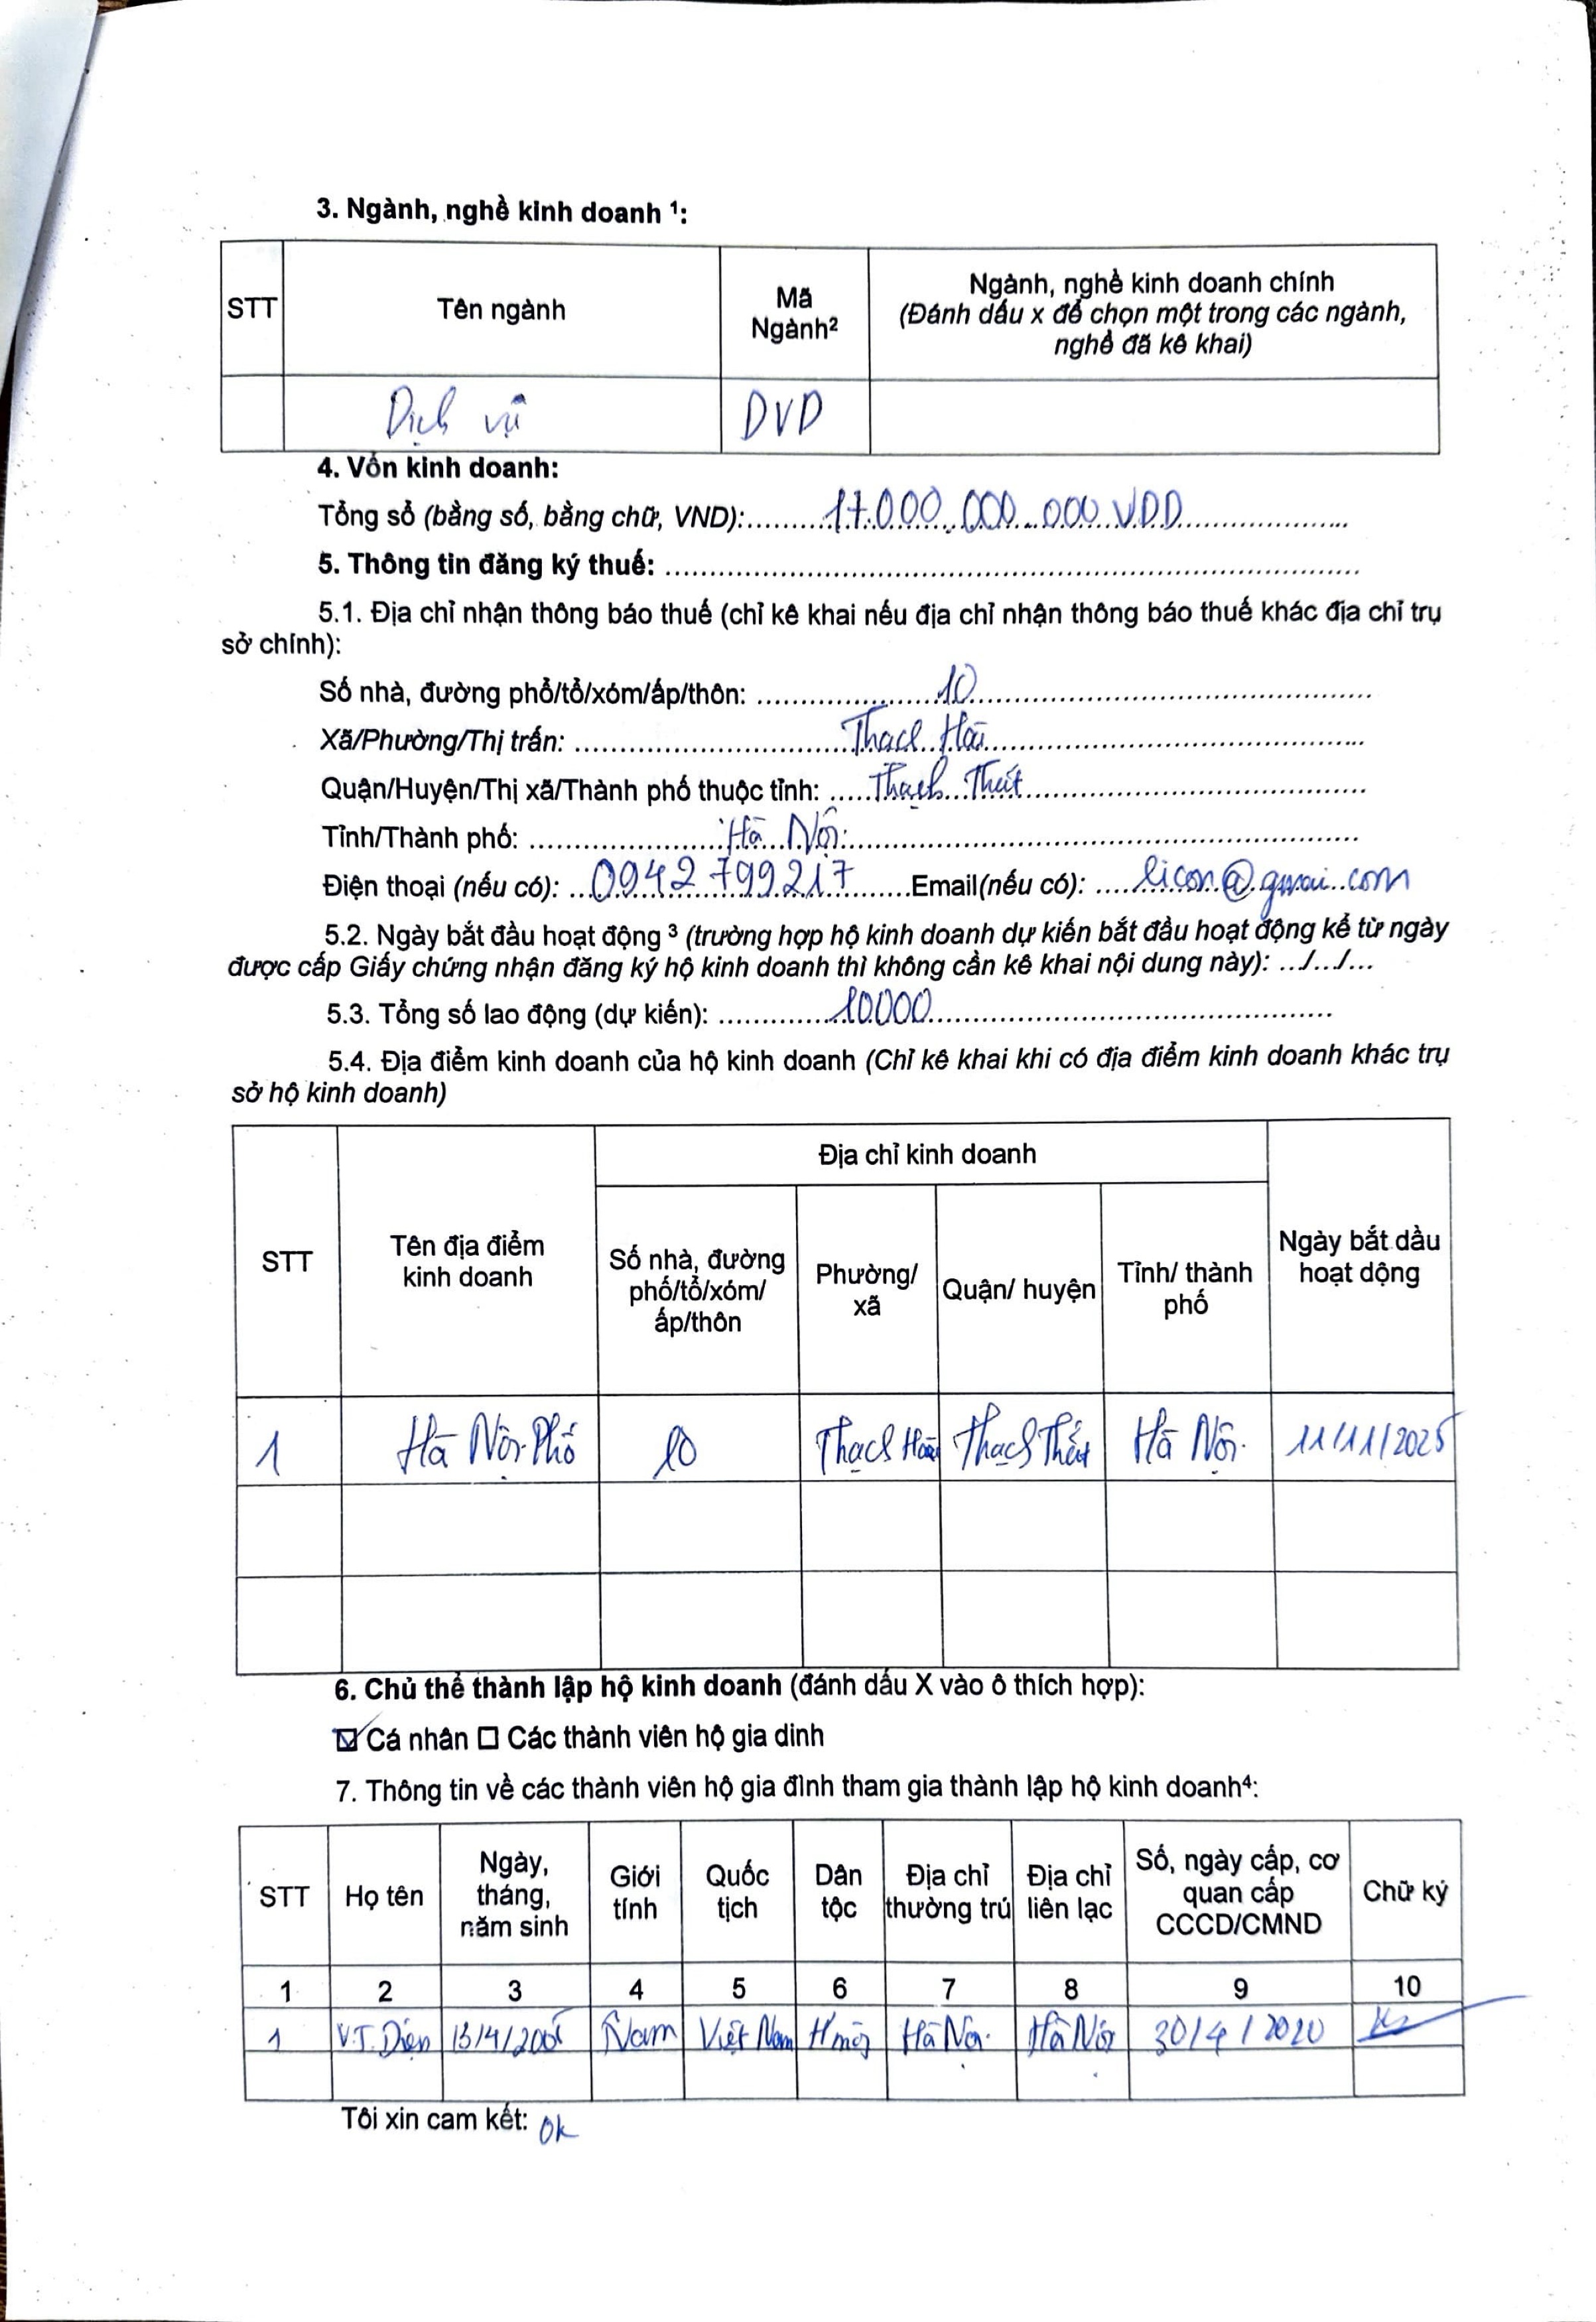 3. Ngành, nghề kinh doanh ¹:
STT
Tên ngành
Mã
Ngành²
Ngành, nghề kinh doanh chính
(Đánh dấu x để chọn một trong các ngành,
nghề đã kê khai)
Dịch vụ
DVD
4. Vốn kinh doanh:
Tổng số (bằng số, bằng chữ, VND): 17.000.000.000 VDD
5. Thông tin đăng ký thuế:
5.1. Địa chỉ nhận thông báo thuế (chỉ kê khai nếu địa chỉ nhận thông báo thuế khác địa chỉ trụ
sở chính):
Số nhà, đường phố/tổ/xóm/ấp/thôn: 10
Xã/Phường/Thị trấn: Thạch
Quận/Huyện/Thị xã/Thành phố thuộc tỉnh: Thạch Thất
Tỉnh/Thành phố: Hà Nội
Điện thoại (nếu có): 0942799217 Email(nếu có): licon@gmai.com
5.2. Ngày bắt đầu hoạt động ³ (trường hợp hộ kinh doanh dự kiến bắt đầu hoạt động kể từ ngày
được cấp Giấy chứng nhận đăng ký hộ kinh doanh thì không cần kê khai nội dung này): .../.../...
5.3. Tổng số lao động (dự kiến): 10000
5.4. Địa điểm kinh doanh của hộ kinh doanh (Chỉ kê khai khi có địa điểm kinh doanh khác trụ
sở hộ kinh doanh)
STT
Tên địa điểm
kinh doanh
Địa chỉ kinh doanh
Số nhà, đường
phố/tổ/xóm/
ấp/thôn
Phường/
xã
Quận/ huyện
Tỉnh/ thành
phố
Ngày bắt dầu
hoạt dộng
1 Hà Nội Phố 10 Thạch Thạch Thất Hà Nội 11/11/2025
6. Chủ thể thành lập hộ kinh doanh (đánh dấu X vào ô thích hợp):
☑ Cá nhân ☐ Các thành viên hộ gia dinh
7. Thông tin về các thành viên hộ gia đình tham gia thành lập hộ kinh doanh⁴:
STT
Họ tên
Ngày,
tháng,
năm sinh
Giới
tính
Quốc
tịch
Dân
tộc
Địa chỉ
thường trú
Địa chỉ
liên lạc
Số, ngày cấp, cơ
quan cấp
CCCD/CMND
Chữ ký
1 2 3 4 5 6 7 8 9 10
1 V.T. Diện Nam Việt Nam H'mông Hà Nội Hà Nội 30/4/2020
Tôi xin cam kết: Ok